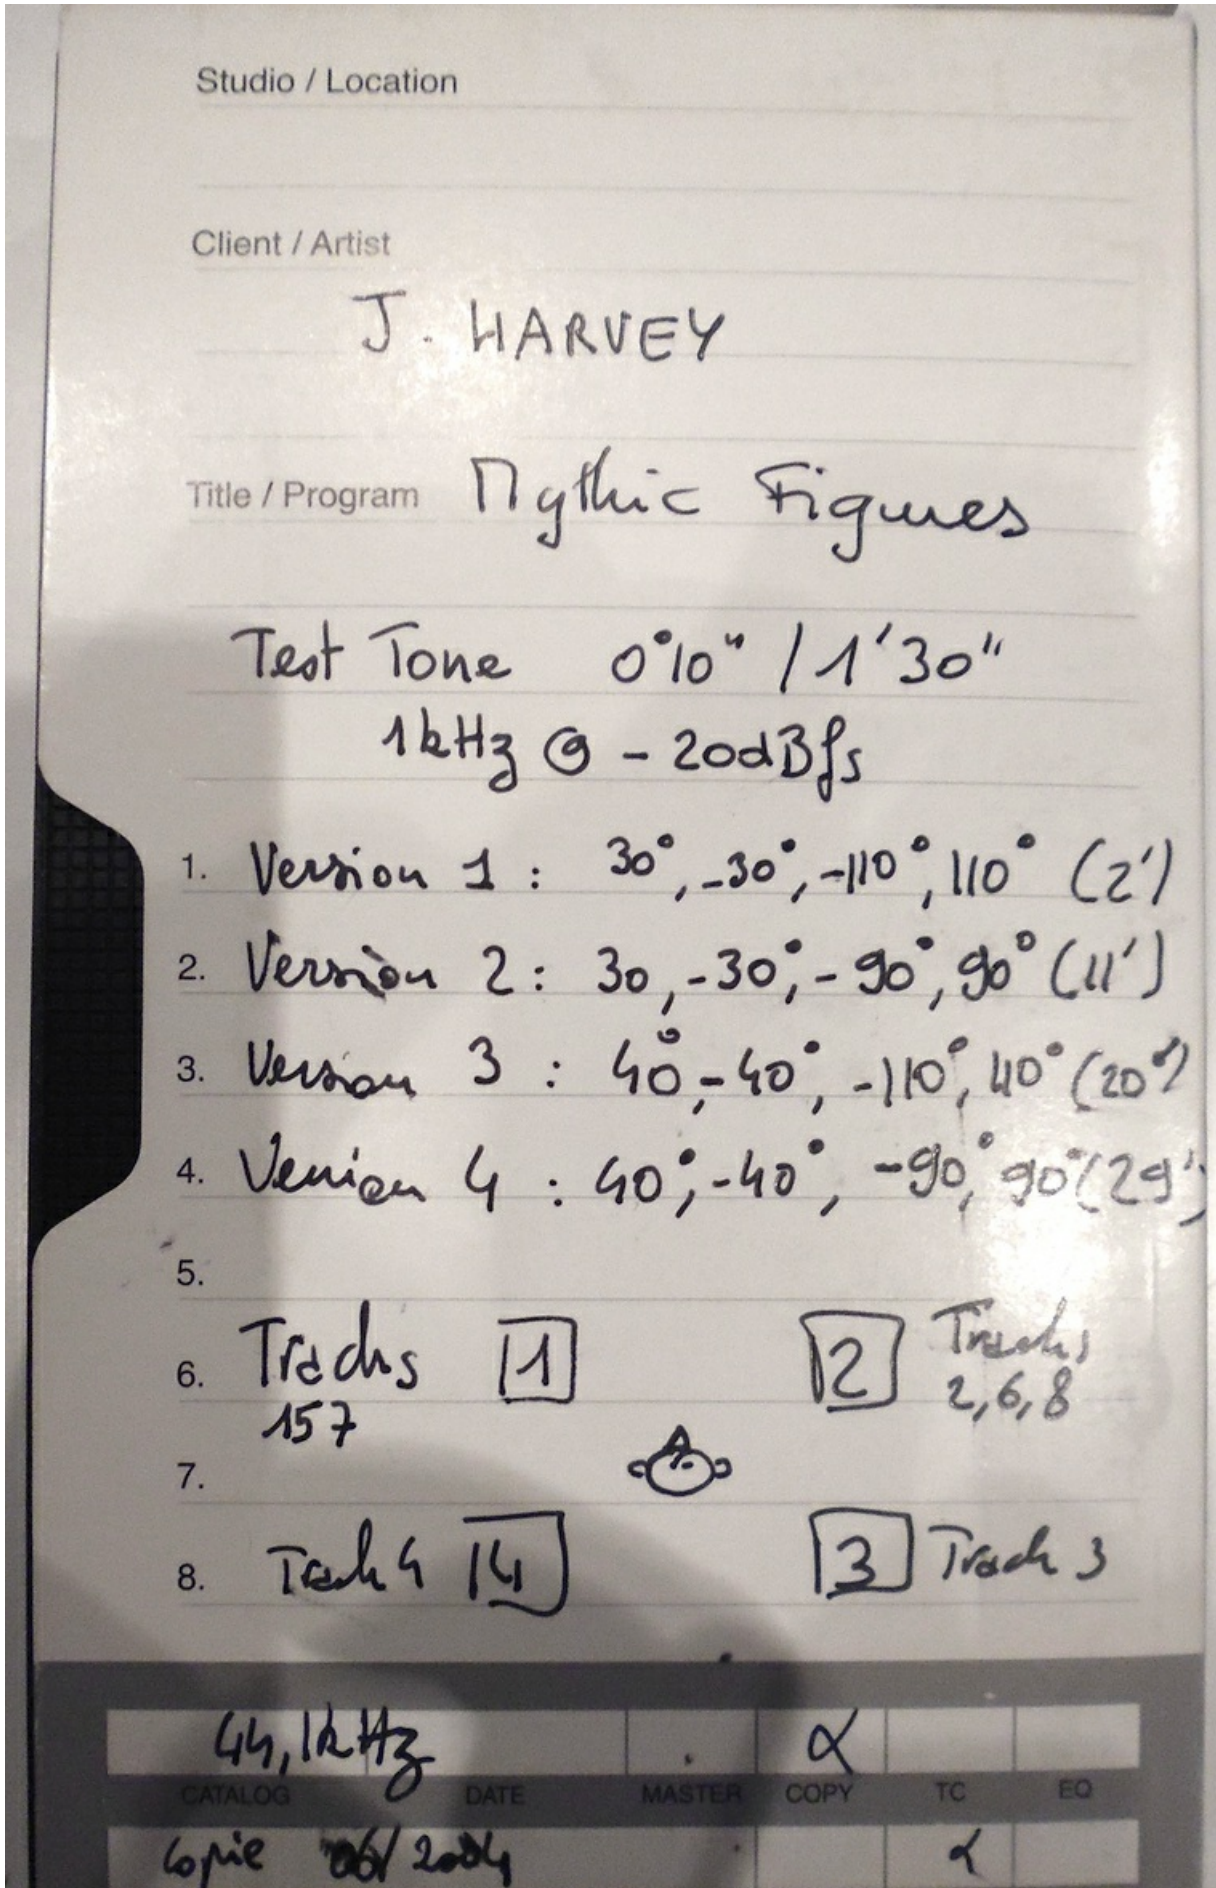 Studio / Location
Client / Artist
J. HARVEY
Title / Program Mythic Figures
Test Tone 0°10" / 1'30"
1kHz @ - 20dBfs
1. Version 1 : 30°, -30°, -110°, 110° (2')
2. Version 2 : 30, -30°, - 90°, 90° (11')
3. Version 3 : 40°, -40°, -110°, 110° (20')
4. Version 4 : 40°, -40°, -90°, 90° (29')
5.
6. Tracks 1 2 Tracks
157 2, 6, 8
7.
8. Track 4 4 3 Track 3
44,1kHz α
CATALOG DATE MASTER COPY TC EQ
Copie 06/2004 α